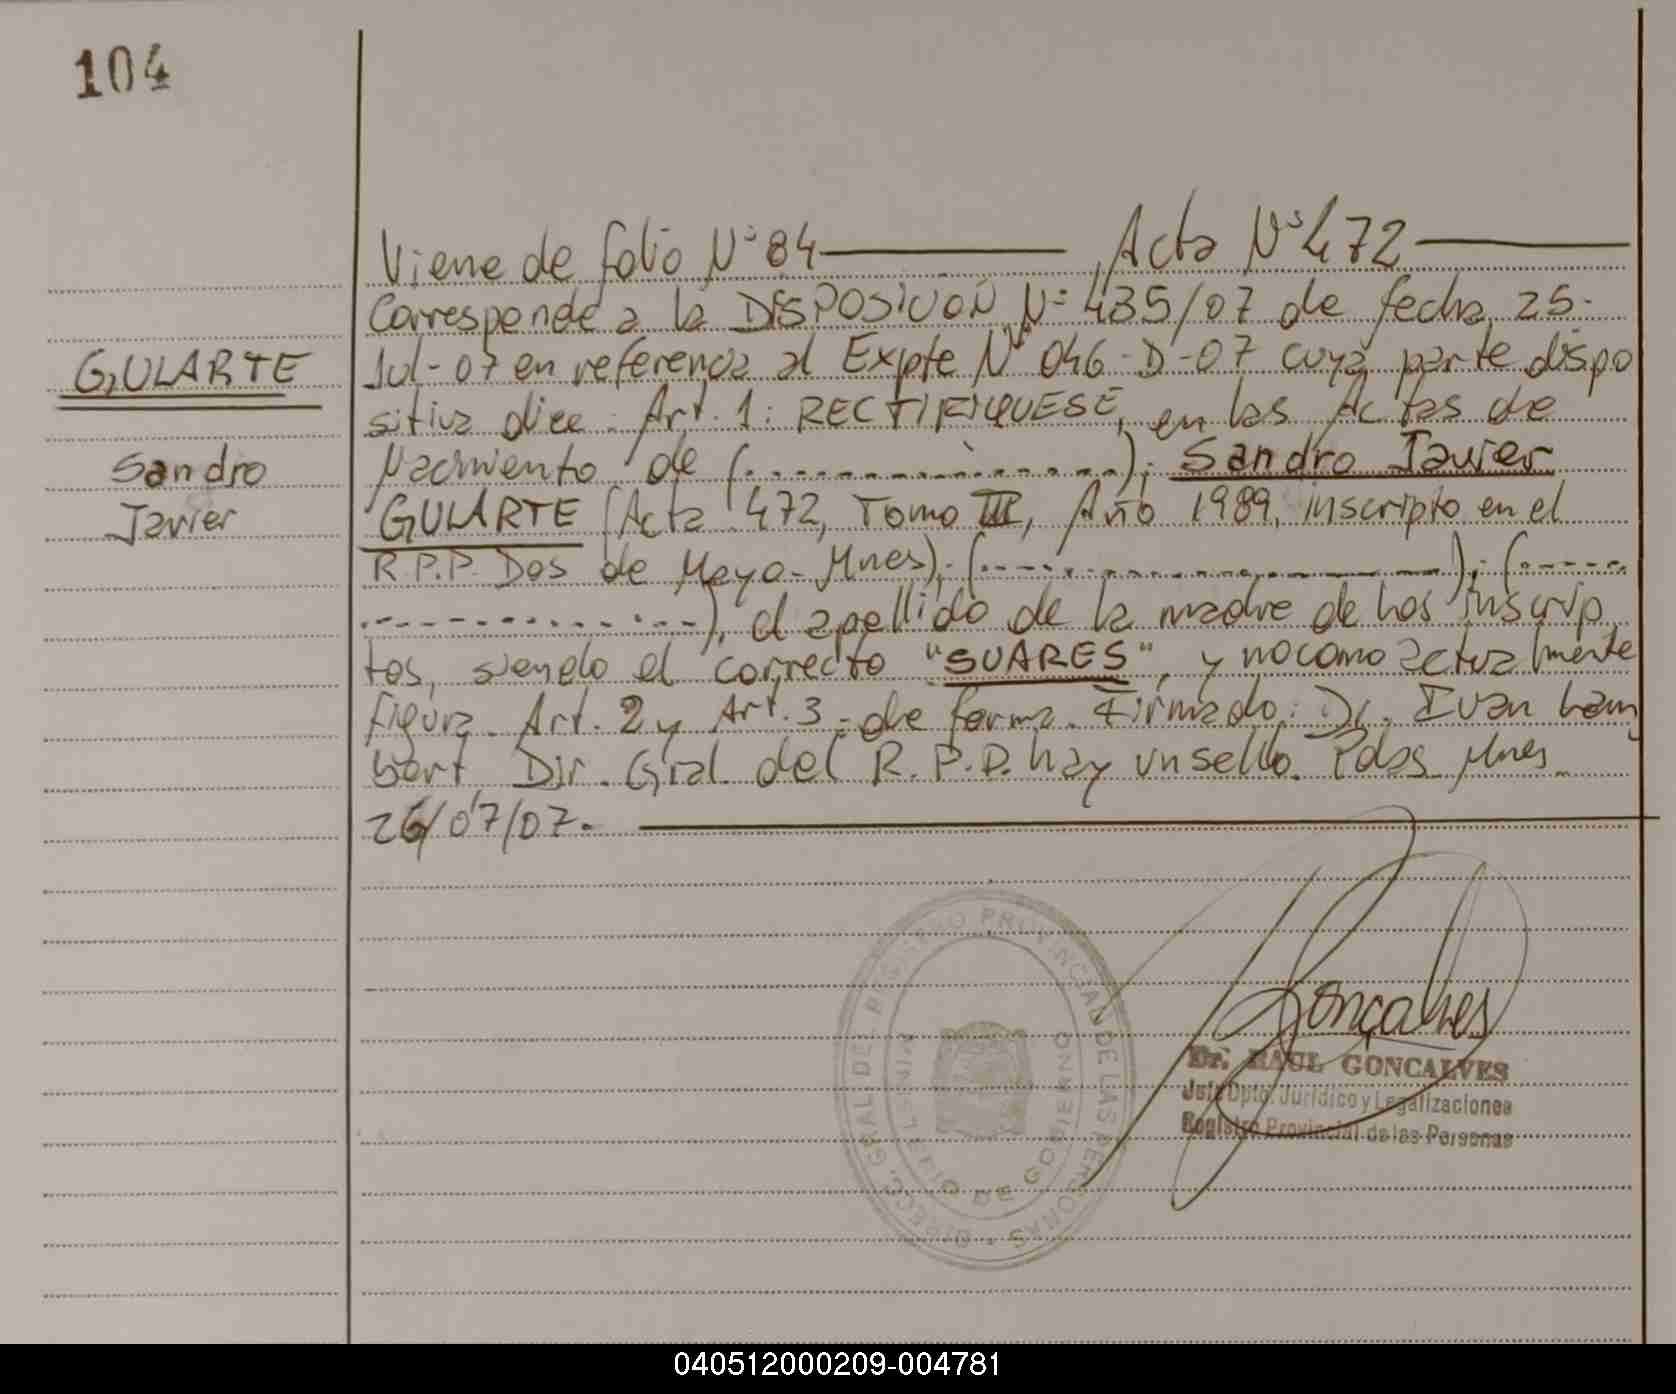 104
Viene de folio Nº 84 Acta Nº 472
Corresponde a la DISPOSICION Nº 435/07 de fecha 25-
Jul-07 en referencia al Expte Nº 046-D-07 cuya parte dispo
sitiva dice: Art. 1: RECTIFIQUESE, en las Actas de
Nacimiento de (................); Sandro Javier
GULARTE (Acta 472, Tomo III, Año 1989, inscripto en el
R.P.P. Dos de Mayo - Mnes); (................); (......
................), el apellido de la madre de los inscrip
tos, siendo el correcto "SUARES", y no como actualmente
figura. Art. 2 y Art. 3 - de forma. Firmado: Dr. Ivan Lam
bert Dir. Gral. del R.P.P. hay un sello. Pdas Mnes.
26/07/07.-
GULARTE
Sandro
Javier
DIRECC. GRAL. DEL REGISTRO PROVINCIAL DE LAS PERSONAS
MINISTERIO DE GOBIERNO
Goncalves
Dr. RAUL GONCALVES
Jefe Dpto. Jurídico y Legalizaciones
Registro Provincial de las Personas
040512000209-004781